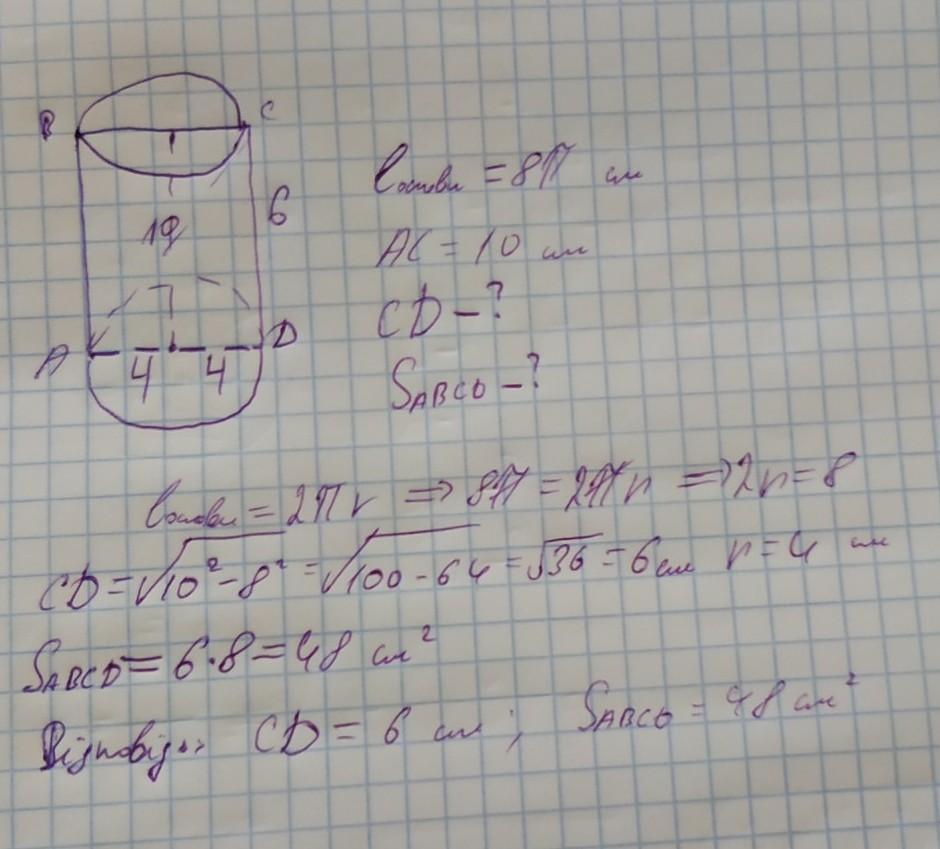 B C
6
10
A D
4 4
lоснови = 8π см
AC = 10 см
CD – ?
SABCD – ?
lоснови = 2πr ⇒ 8π = 2πr ⇒ 2r = 8
CD = √10² – 8² = √100 – 64 = √36 = 6 см r = 4 см
SABCD = 6·8 = 48 см²
Відповідь: CD = 6 см; SABCD = 48 см²